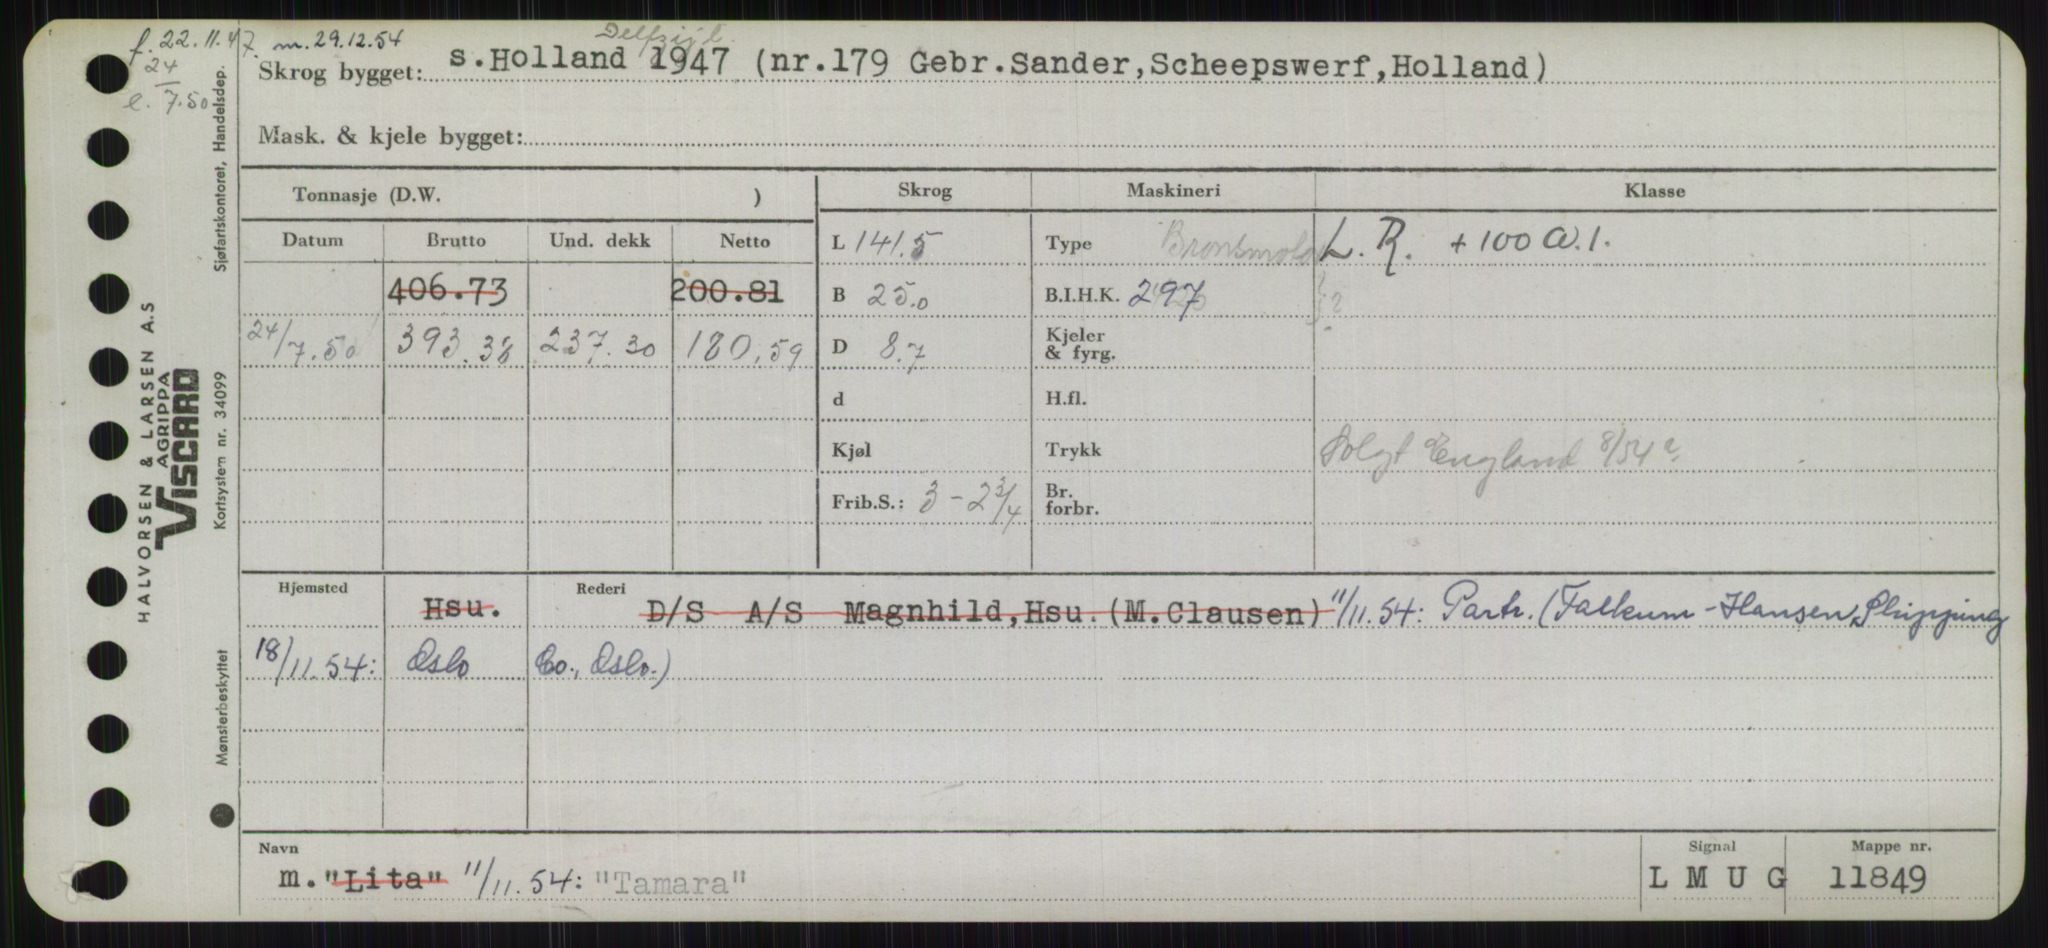 f. 22.11.47. m. 29.12.54
24
e. 7.50
Delfzijl.
Skrog bygget: s.Holland 1947 (nr.179 Gebr.Sander,Scheepswerf,Holland)
Mask. & kjele bygget:
Tonnasje (D.W. )
Skrog
Maskineri
Klasse
Datum Brutto Und. dekk Netto
406.73 200.81
24/7.50 393.38 237.30 180,59
L 141.5
B 25.0
D 8.7
d
Kjøl
Frib.S.: 3-2 3/4
Type
B.I.H.K. 297
Kjeler
& fyrg.
H.fl.
Trykk
Br.
forbr.
L. R. + 100 A.1.
?
Solgt England 8/54?
Hjemsted
Hsu.
Rederi
D/S A/S Magnhild,Hsu.(M.Clausen) 11/11.54: Partr. (Falkum-Hansen Shipping
18/11.54: Oslo Co., Oslo.)
Navn
m."Lita" 11/11.54: "Tamara"
Signal
L M U G
Mappe nr.
11849
HALVORSEN & LARSEN A.S
AGRIPPA
VISCARD
Mønsterbeskyttet Kortsystem nr. 34099 Sjøfartskontoret, Handelsdep.